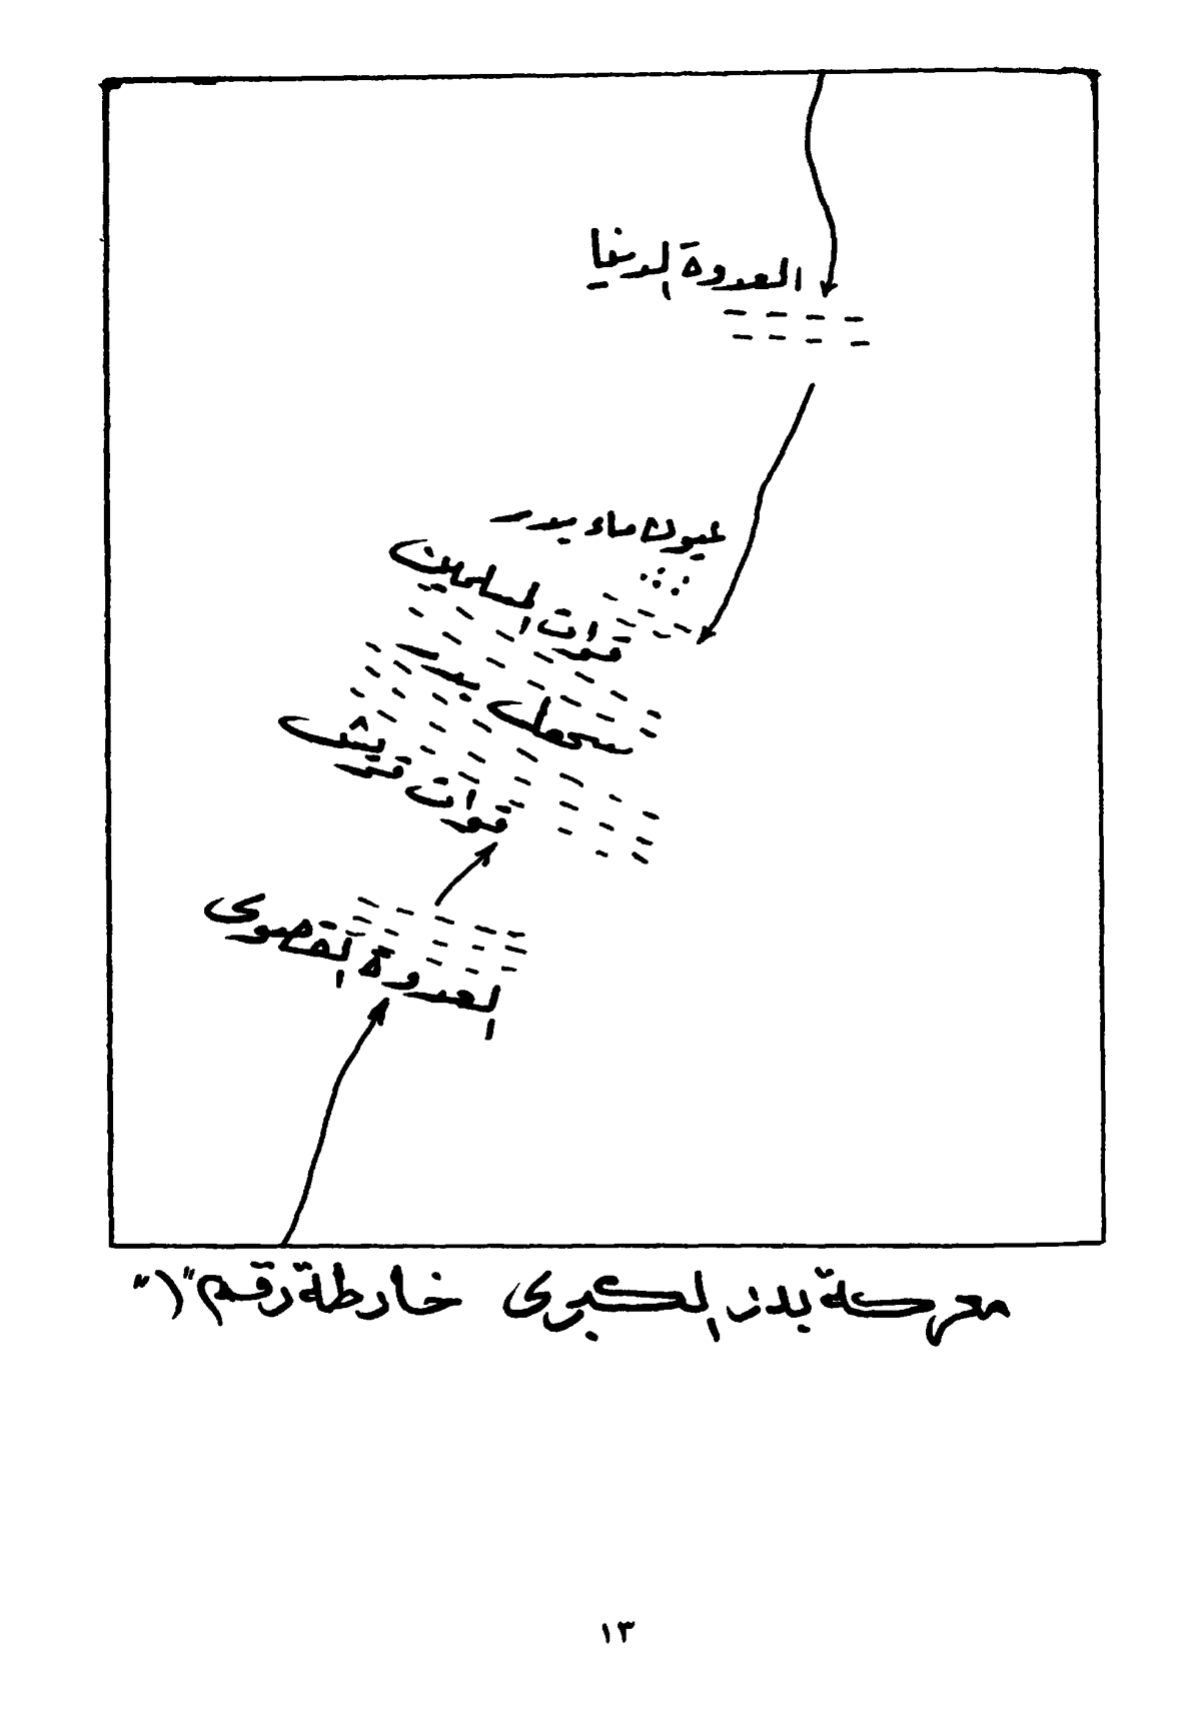 العدوة الدنيا
عيون ماء بدر
قوات المسلمين
سهل بدر
قوات قريش
العدوة القصوى
معركة بدر الكبرى خارطة رقم "١"
١٣